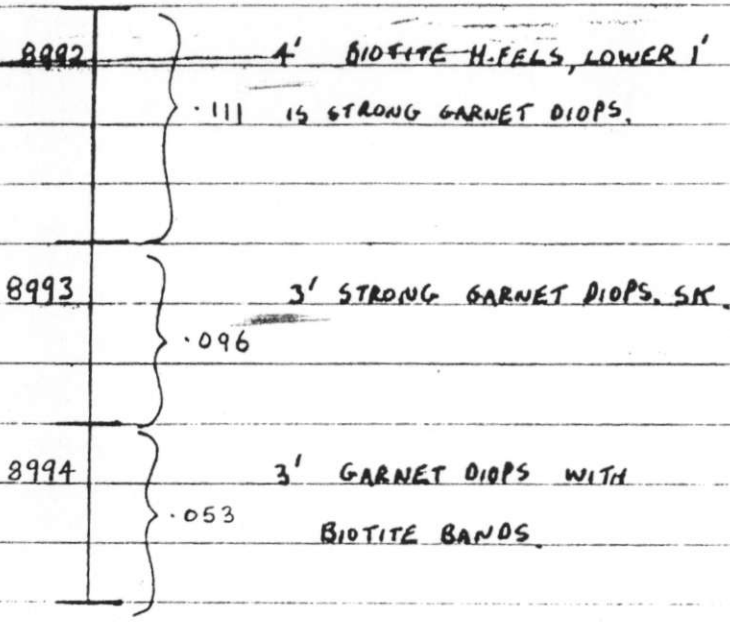 8992 4' BIOTITE H.FELS, LOWER 1'
.111 IS STRONG GARNET DIOPS.
8993 3' STRONG GARNET DIOPS. SK.
.096
8994 3' GARNET DIOPS WITH
.053 BIOTITE BANDS.